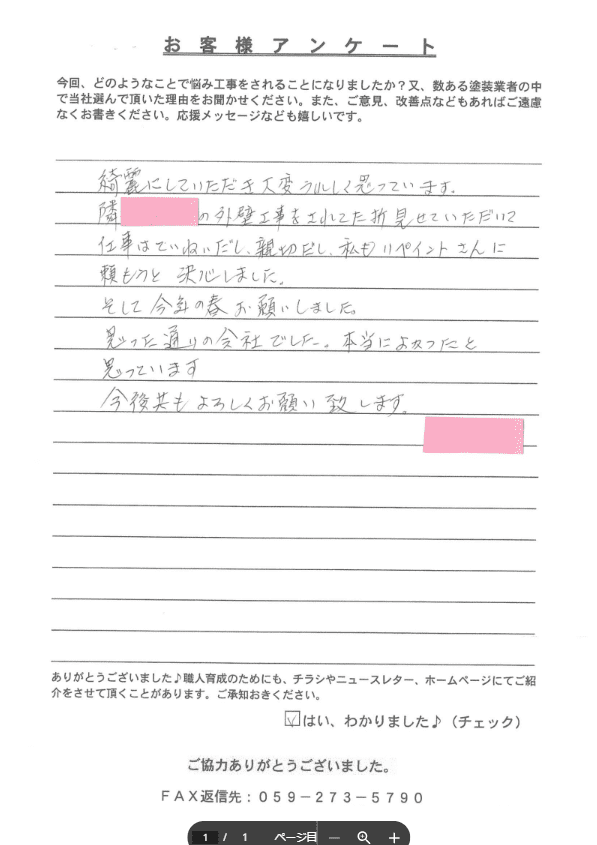 お客様アンケート
今回、どのようなことで悩み工事をされることになりましたか?又、数ある塗装業者の中
で当社選んで頂いた理由をお聞かせください。また、ご意見、改善点などもあればご遠慮
なくお書きください。応援メッセージなども嬉しいです。
綺麗にしていただき大変うれしく思っています。
隣の外壁工事をされてた折見せていただいて
仕事はていねいだし、親切だし、私もリペイントさんに
頼もうと決心しました。
そして今年の春お願いしました。
思った通りの会社でした。本当によかったと
思っています
今後共もよろしくお願い致します。
ありがとうございました♪職人育成のためにも、チラシやニュースレター、ホームページにてご紹
介をさせて頂くことがあります。ご承知おきください。
☑はい、わかりました♪（チェック）
ご協力ありがとうございました。
ＦＡＸ返信先：０５９－２７３－５７９０
1 / 1 ページ目